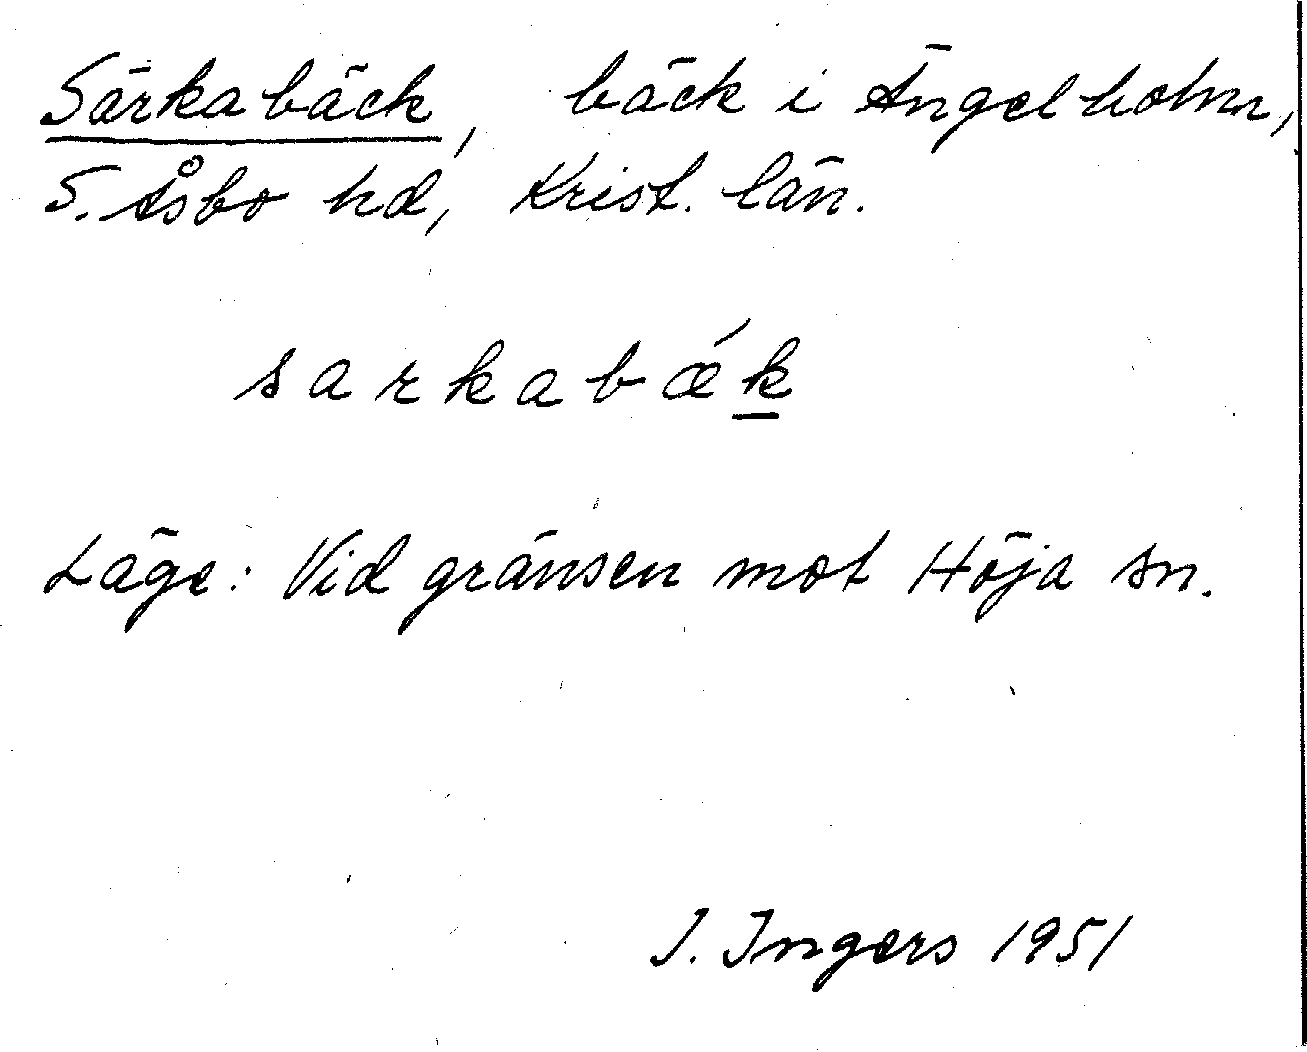 Särkabäck, bäck i Ängelholm,
S. Åsbo hd, Krist. län.
sarkabǽk̲
Läge: Vid gränsen mot Höja sn.
I. Ingers 1951